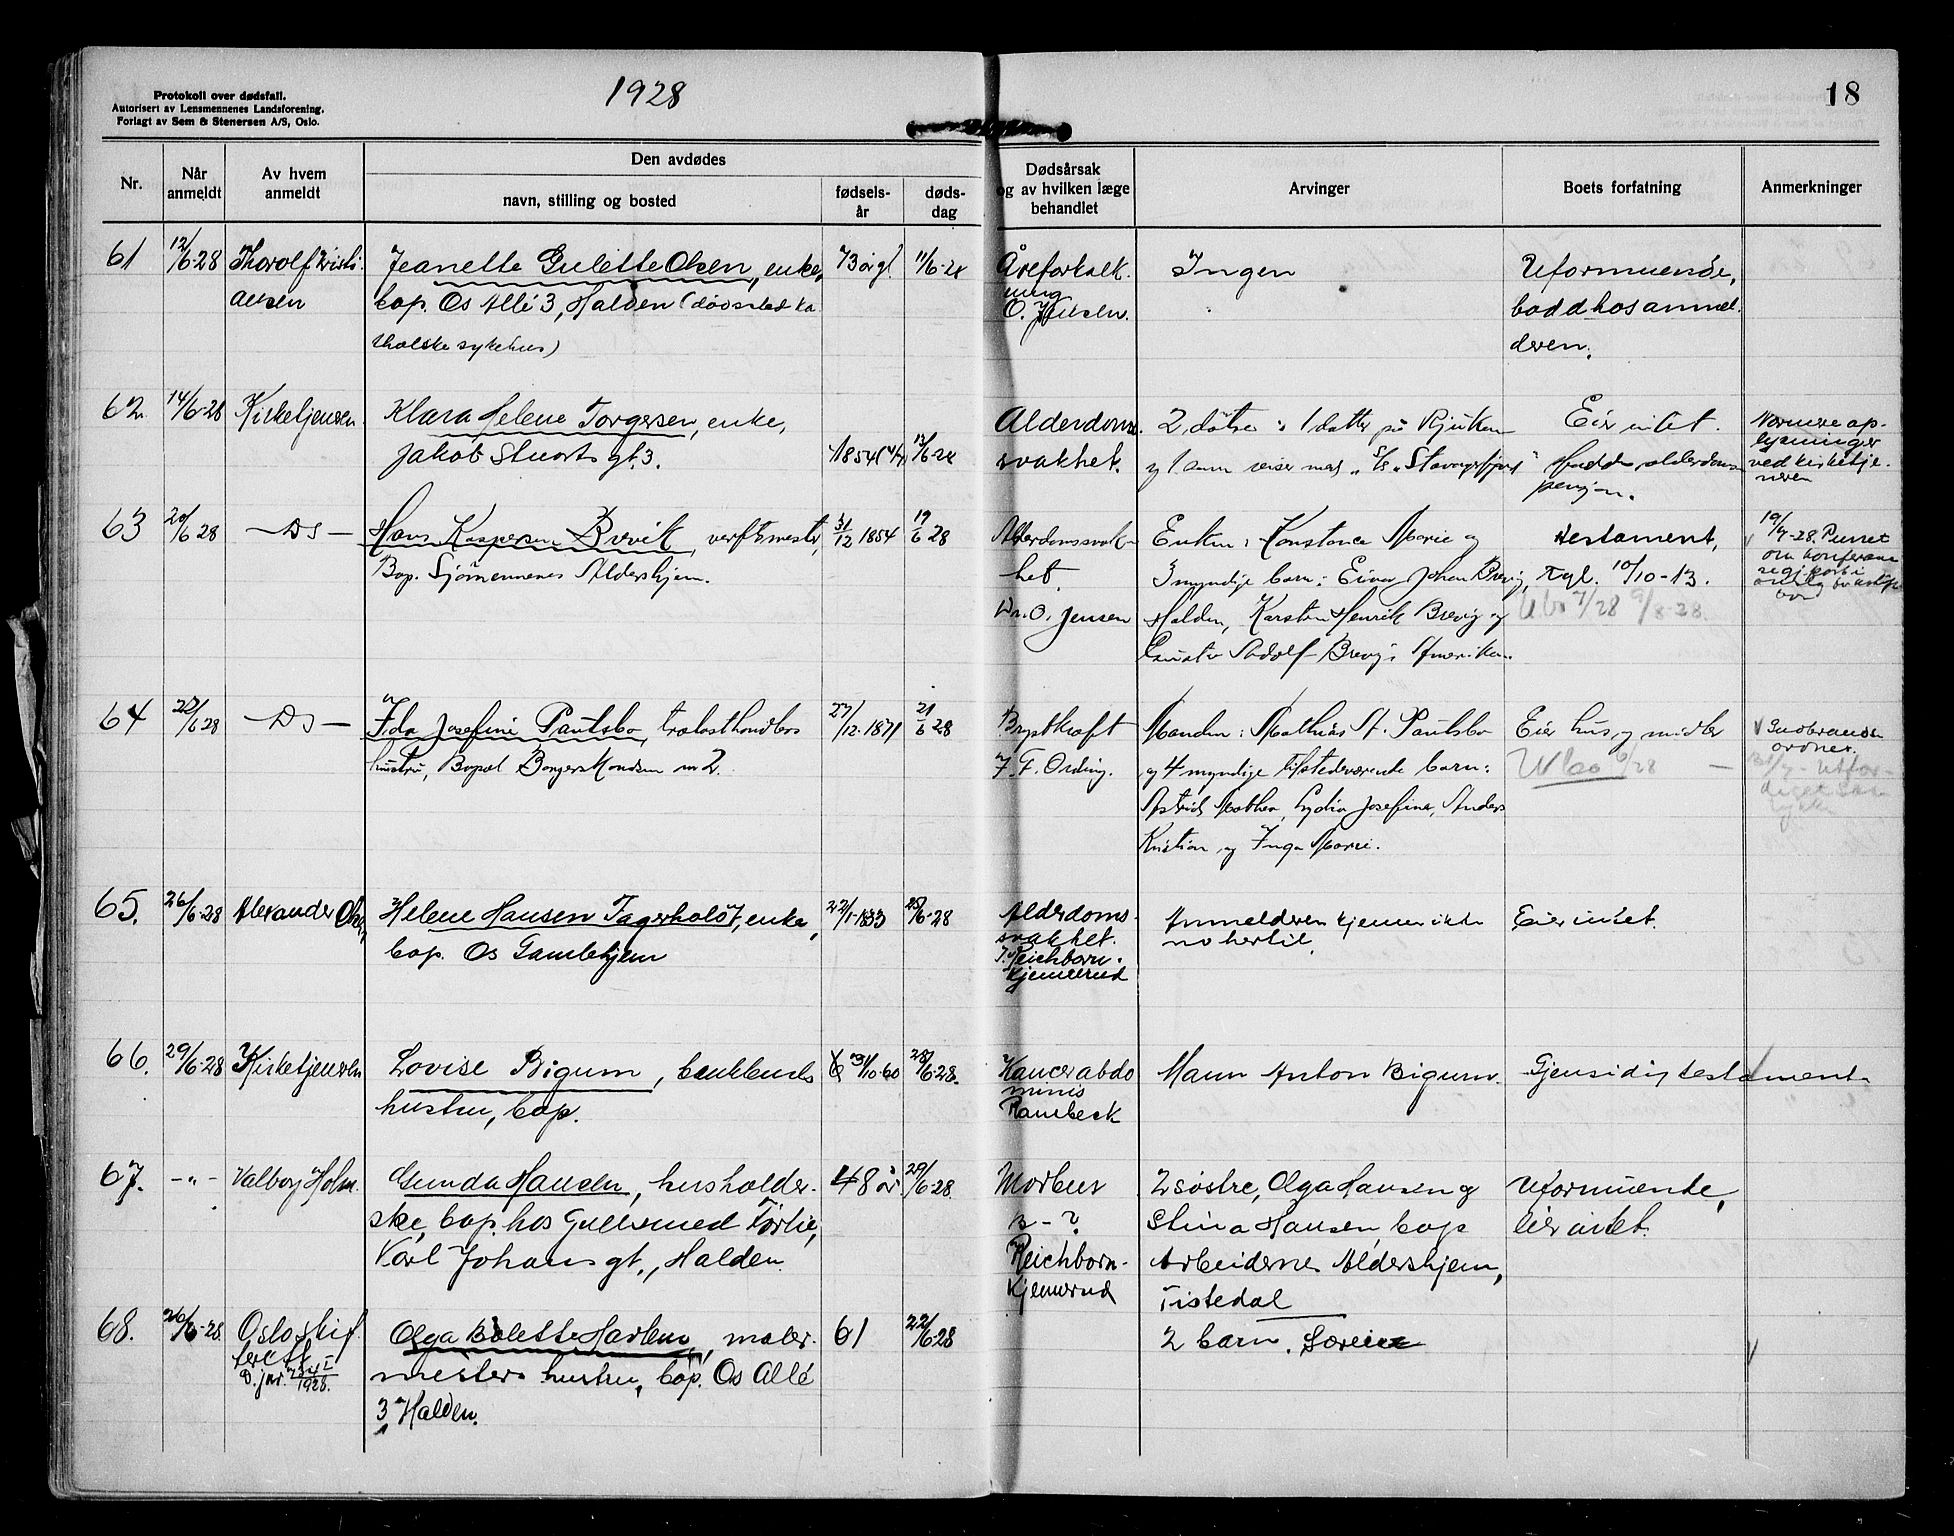 Protokoll over dødsfall.
Autorisert av Lensmennenes Landsforening.
Forlagt av Sem & Stenersen A/S, Oslo.
1928
18
Nr.
Når anmeldt
Av hvem anmeldt
Den avdødes
navn, stilling og bosted
fødsels-år
døds-dag
Dødsårsak og av hvilken læge behandlet
Arvinger
Boets forfatning
Anmerkninger
61
12/6-28
Thorolf Kristi
ansen
Jeanette Gulette Olsen, enke,
bop. Os Allé 3, Halden (dødssted ka
tholske sykehus)
73 år gl.
11/6-28
Åreforkalk-
ning
O. Jensen.
Ingen
Uformuende,
bodd hos anmel-
deren.
62.
14/6-28
Kirketjeneren
Klara Helene Torgersen, enke,
Jakob Stuarts gt. 3.
1854
13/6-28
Alderdoms
svakhet.
2 døtre : 1 datter på Rjukan
og 1 som reiser med "S/S "Stavangerfjord"
Eier intet.
Hadde alderdoms
pensjon.
Nærmere op-
lysninger
ved kirketje-
neren
63
20/6 28
— DS —
Hans Kaspersen Brevik, verftsmester,
Bop. Sjømennenes Aldershjem.
31/12 1854
19/6 28
Alderdomssvak-
het.
Dr. O. Jensen
Enken : Konstance Marie og
3 myndige barn : Einar Johan Brevig,
Halden, Karsten Henrik Brevig og
Gustav Adolf Brevig i Amerika.
Testament,
tgl. 10/10-13.
Ubo 7/28 9/8-28.
19/7-28. Purret
om konferanse
64
22/6 28
— DS —
Ida Josefine Paulsbo, trælasthandlers
hustru, Bopæl Borgermandsen nr 2.
27/12. 1871
21/6 28
Brystkræft
J. F. Ording.
Manden : Mathias A. Paulsbo
og 4 myndige tilstedeværende barn :
Astrid Mathea, Lydia Josefine, Anders
Kristian og Inga Marie.
Eier hus og midler
Ubo 6/28 —
ordner.
31/7 - Utfer-
diget
65.
26/6-28
Alexander Olsen
Helene Hansen Tagerholdt, enke,
bop. Os Gamlehjem
22/1-1833
25/6-28
Alderdoms-
svakhet.
J. Reichborn-
Kjennerud
Anmelderen kjenner ikke
no hertil
Eier intet.
66.
29/6-28
Kirketjeneren
Lovise Bigum, bundtmakers
hustru, bop.
31/10-60
28/6-28.
Kancer abdo
minis
Rambeck
Mann Anton Bigum.
Gjensidig testament
67.
-"-
Valborg Holm.
Gunda Hansen, husholder-
ske, bop. hos Gullsmed Torlie,
Karl Johans gt., Halden.
48 år
29/6-28.
Morbus
B - ?
Reichborn-
Kjennerud
2 søstre, Olga Hansen og
Stina Hansen bop
Arbeidernes Aldershjem,
Tistedal
Uformuende,
eier intet.
68.
26/6-28.
Oslo skif
terett
D. jnr.
1928.
Olga Bolette Harlem, maler-
mesters hustru, bop. Os Allé
3 Halden.
61
22/6-28
2 barn. Særeie